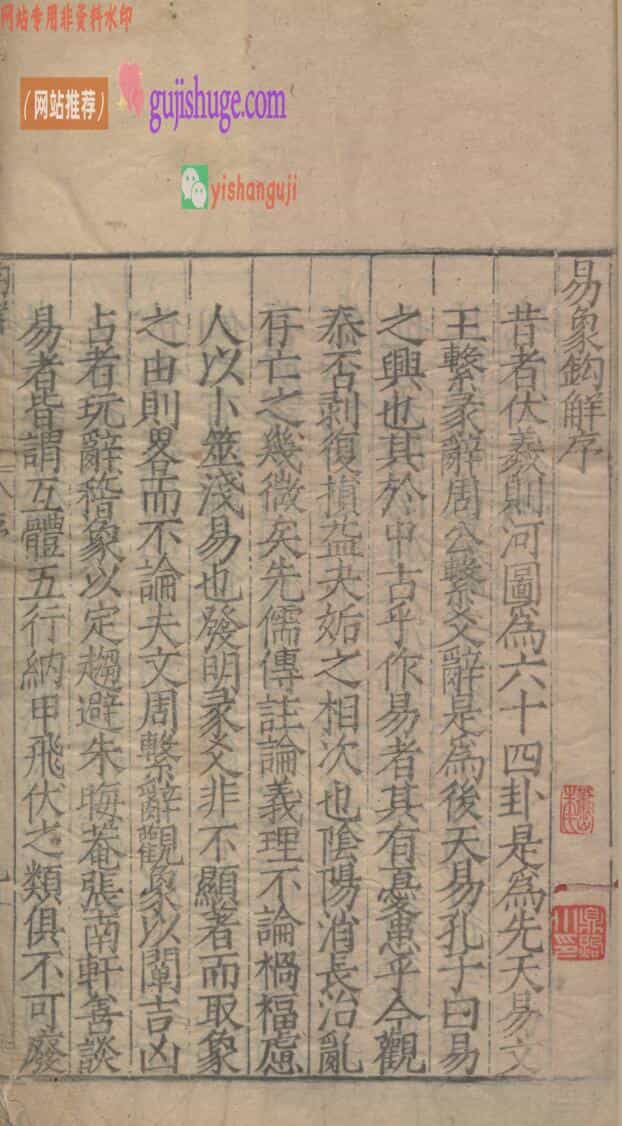 网站专用非资料水印
（网站推荐）
gujishuge.com
yishanguji
易象鈎解序
昔者伏羲則河圖爲六十四卦是爲先天易文
王繫彖辭周公繫爻辭是爲後天易孔子曰易
之興也其於中古乎作易者其有憂患乎今觀
泰否剥復損益夬姤之相次也陰陽消長治亂
存亡之幾微矣先儒傳註論義理不論禍福慮
人以卜筮淺易也發明彖爻非不顯著而取象
之由則畧而不論夫文周繫辭觀象以闡吉凶
占者玩辭稽象以定趨避朱晦菴張南軒善談
易者皆謂互體五行納甲飛伏之類俱不可廢